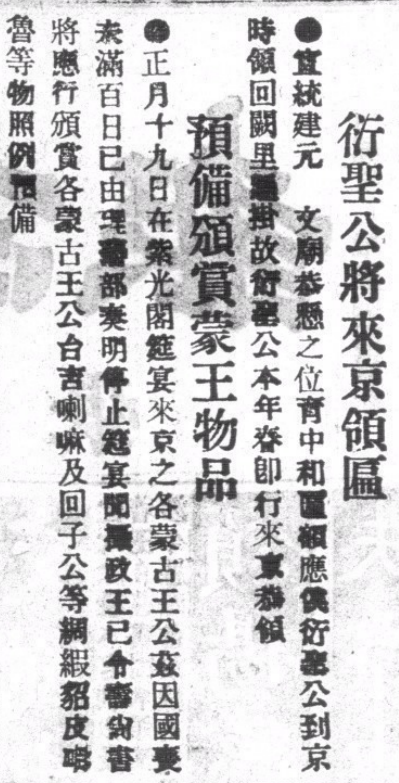 衍聖公將來京領匾
●宣統建元　文廟恭懸之位育中和匾額應俟衍聖公到京
時領回闕里懸掛故衍聖公本年春卽行來京恭領
預備頒賞蒙王物品
●正月十九日在紫光閣筵宴來京之各蒙古王公茲因國喪
未滿百日已由理藩部奏明停止筵宴聞攝政王已令壽尙書
將應行頒賞各蒙古王公台吉喇嘛及回子公等綢緞貂皮
魯等物照例預備